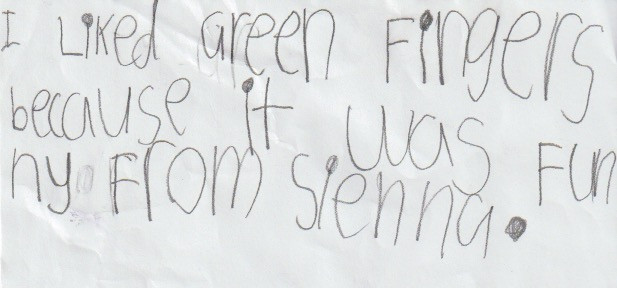 I Liked Green Fingers
because it was Fun
ny From Sienna.